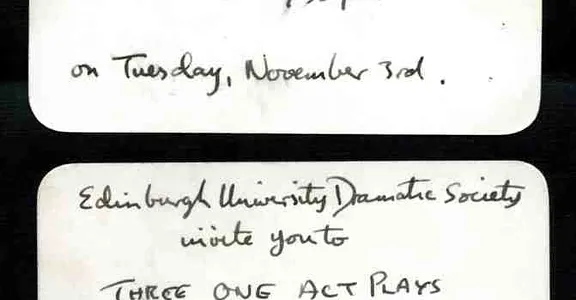 on Tuesday, November 3rd.
Edinburgh University Dramatic Society
invite you to
THREE ONE ACT PLAYS